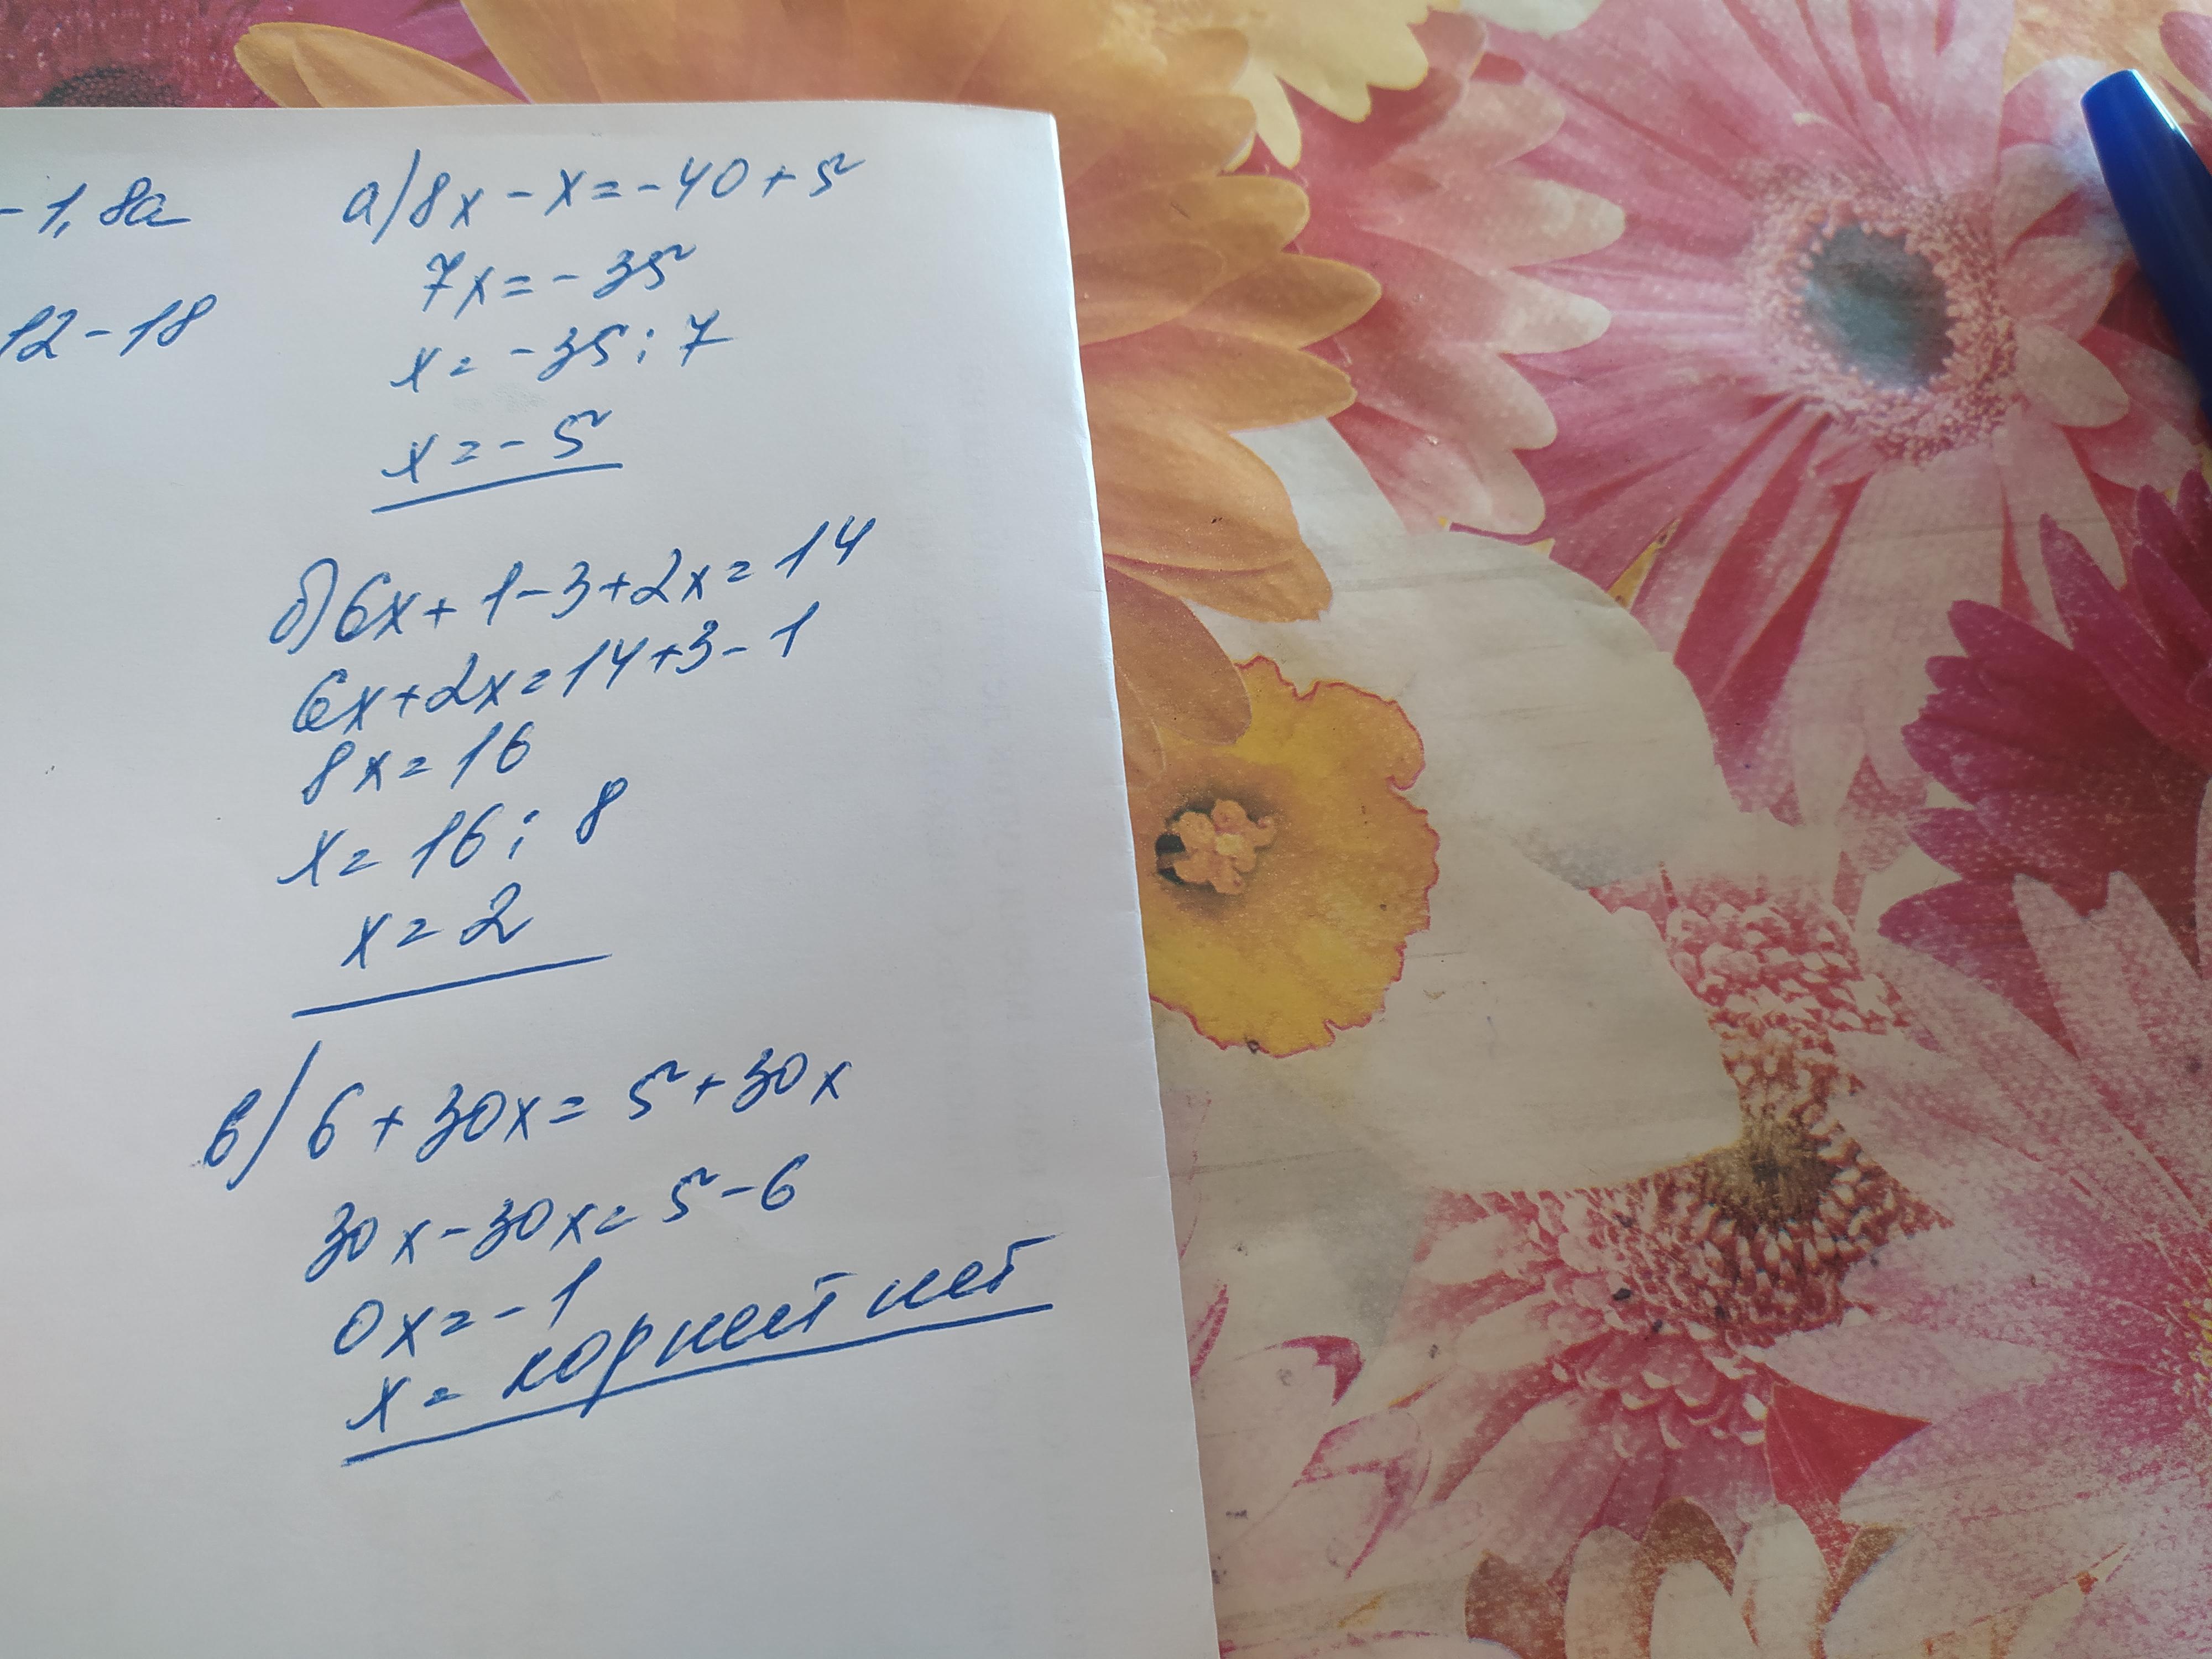 - 1,8a
12 - 18
а) 8x - x = -40 + 5
7x = - 35
x = - 35 : 7
x = - 5
б) 6x + 1 - 3 + 2x = 14
6x + 2x = 14 + 3 - 1
8x = 16
x = 16 : 8
x = 2
в) 6 + 30x = 5 + 30x
30x - 30x = 5 - 6
0x = - 1
x = корней нет